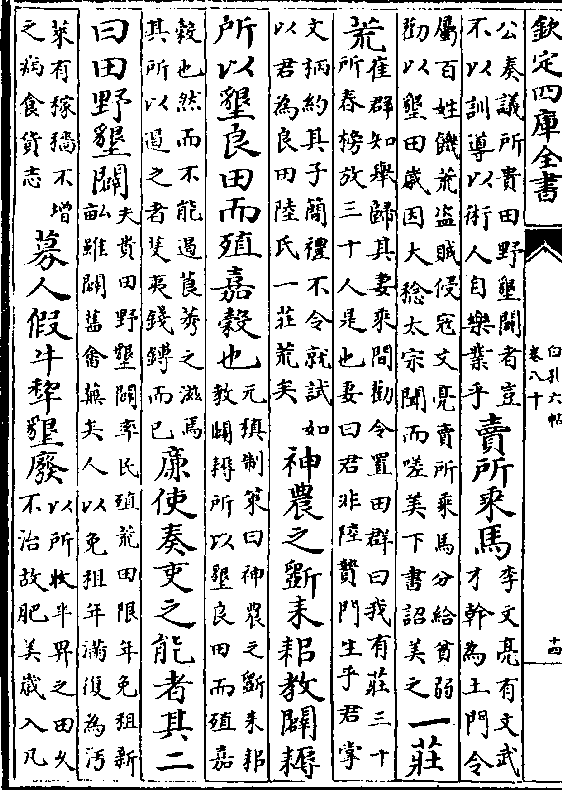 欽定四庫全書
白孔六帖
卷八十
十四
公奏議所貴田野墾闢者豈
不以訓導以術人自樂業乎
賣所乘馬
李文亮有文武
才幹為土門令
屬百姓饑荒盜賊侵寇文亮賣所乘馬分給貧弱
勸以墾田歲因大稔太宗聞而嗟美下書詔美之
一莊
荒
崔群知舉歸其妻乘間勸令置田群曰我有莊三十
所春榜放三十人是也妻曰君非陸贄門生乎君掌
文柄約其子簡禮不令就試如
以君為良田陸氏一莊荒矣
神農之斵耒耜教闢耨
所以墾良田而殖嘉穀也
元稹制策曰神農之斵耒耜
教闢耨所以墾良田而殖嘉
穀也然而不能過莨莠之滋焉
其所以過之者芟夷錢鎛而已
廉使奏吏之能者其二
曰田野墾闢
夫貴田野墾闢率民殖荒田限年免租新
畝雖闢舊畬蕪矣人以免租年滿復為汚
萊有稼穡不增
之病食貨志
募人假牛犂墾廢
以所收半畀之田久
不治故肥美歲入凡